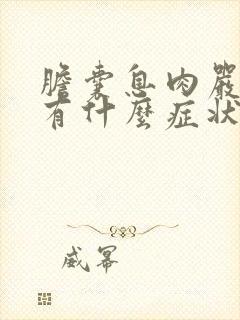 膽囊息肉嚴
有什麼症狀
威冪